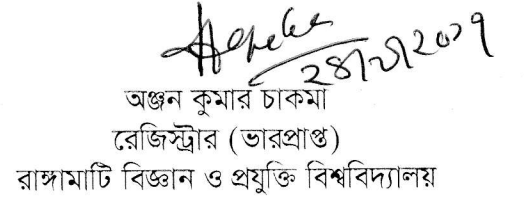 অঞ্জন কুমার চাকমা
রেজিস্ট্রার (ভারপ্রাপ্ত)
রাঙ্গামাটি বিজ্ঞান ও প্রযুক্তি বিশ্ববিদ্যালয়